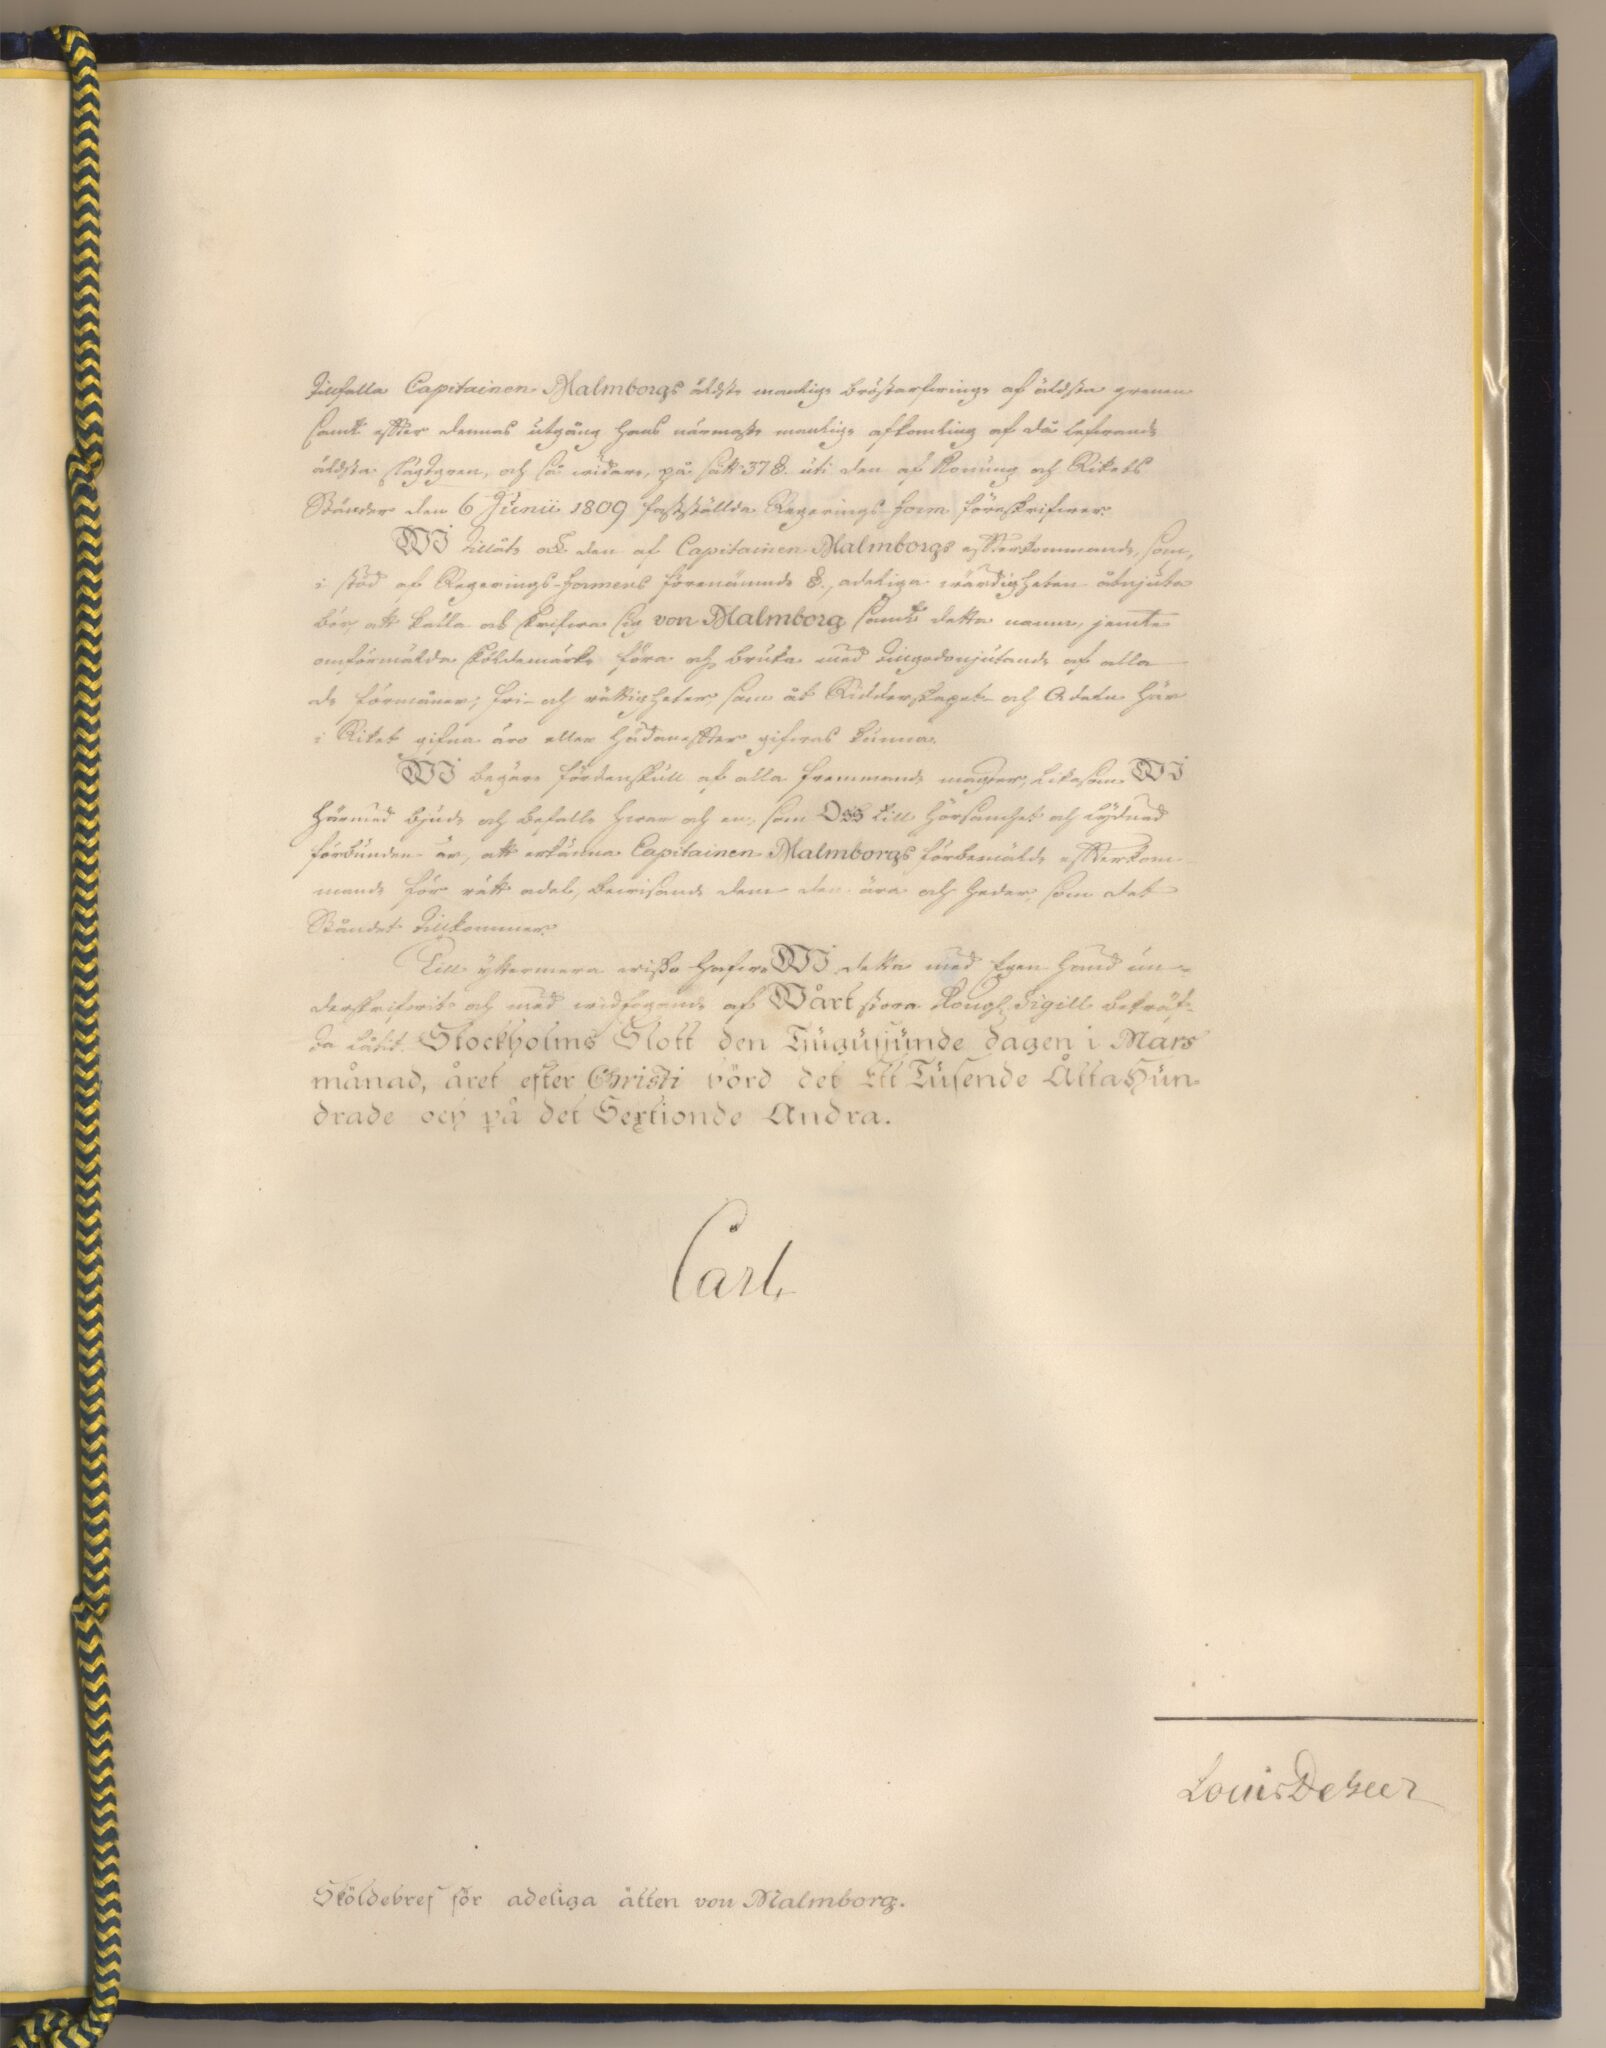 tillfalla Capitainen Malmborgs äldste manlige bröstarfvinge af äldsta grenen
samt efter dennes utgång hans närmaste manlige afkomling af då lefvande
äldsta slägtgren, och så vidare, på sätt 37 §. uti den af Konung och Rikets
Ständer den 6 Junii 1809 fastställda Regerings-form föreskrifver.
WI tillåte ock den af Capitainen Malmborgs efterkommande, som,
i stöd af Regerings-formens förenämnde §., adeliga värdigheten åtnjuta
bör, att kalla och skrifva sig von Malmborg samt detta namn, jemte
omförmälda sköldemärke föra och bruka med tillgodonjutande af alla
de förmåner, fri- och rättigheter, som åt Ridderskapet och Adeln här
i Riket gifna äro eller hädanefter gifvas kunna.
WI begäre fördenskull af alla fremmande magter, likasom WI
härmed bjude och befalle hvar och en, som Oss till hörsamhet och lydnad
förbunden är, att erkänna Capitainen Malmborgs förbemälde efterkom-
mande för rätt adel, bevisande dem den ära och heder, som det
Ståndet tillkommer.
Till yttermera visso hafve WI detta med Egen hand un-
derskrifvit och med vidfogande af Wårt stora Kongl. Sigill bekräf-
ta låtit. Stockholms Slott den Tjugusjunde dagen i Mars
månad, året efter Christi börd det Ett Tusende Åtta Hun-
drade och på det Sextionde Andra.
Carl
Louis De Geer
Sköldebref för adeliga ätten von Malmborg.